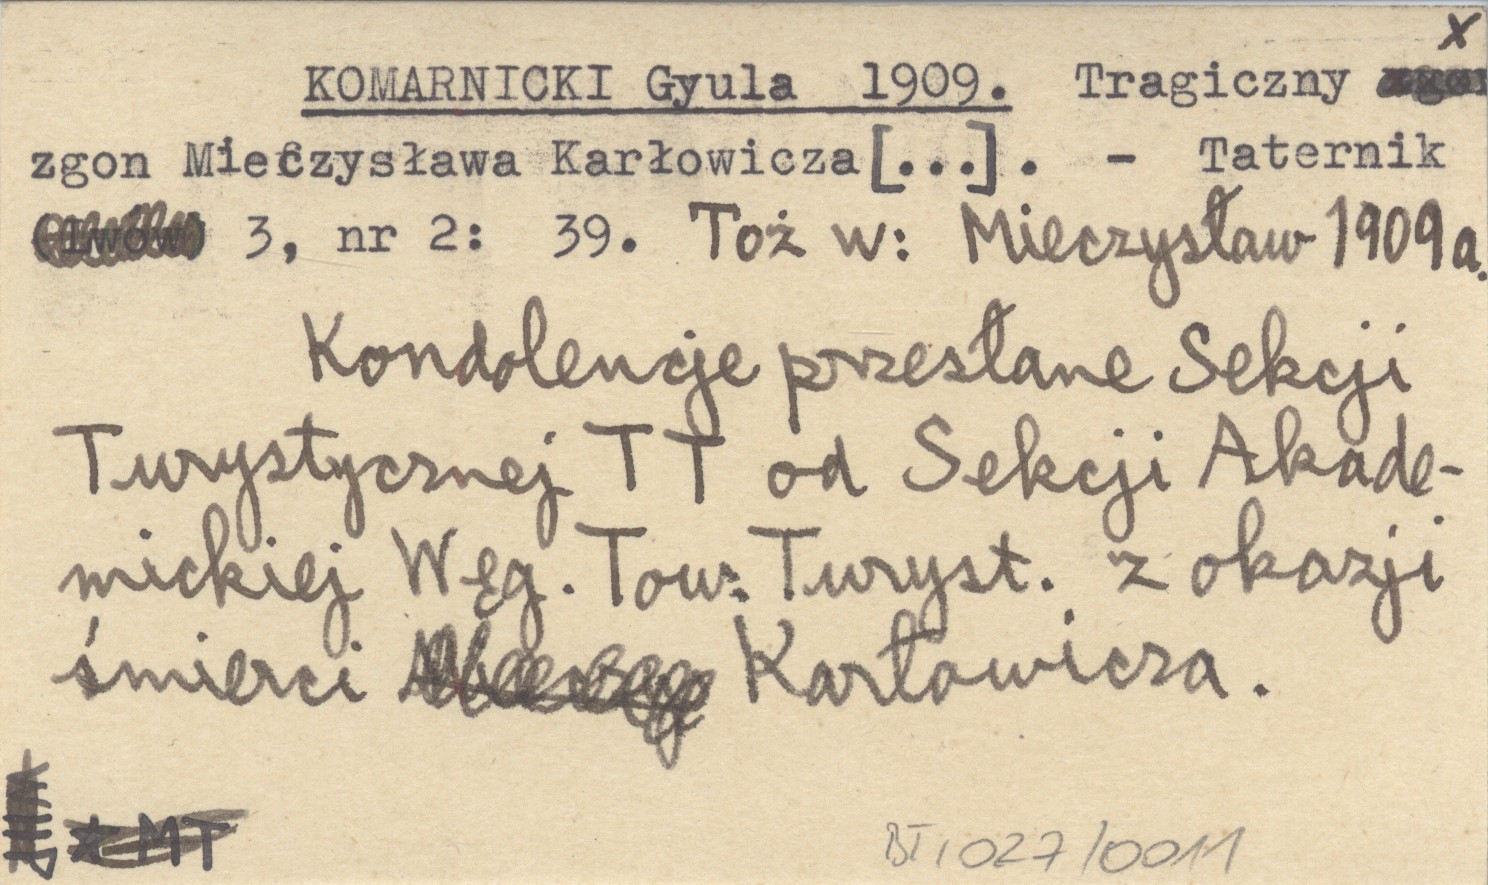 x
KOMARNICKI Gyula 1909. Tragiczny
zgon Mieczysława Karłowicza[...]. - Taternik
(Lwów) 3, nr 2: 39. Toż w: Mieczysław 1909a.
Kondolencje przesłane Sekcji
Turystycznej TT od Sekcji Akade-
mickiej Węg. Tow. Turyst. z okazji
śmierci Karłowicza.
* MT
BT, 027/0011